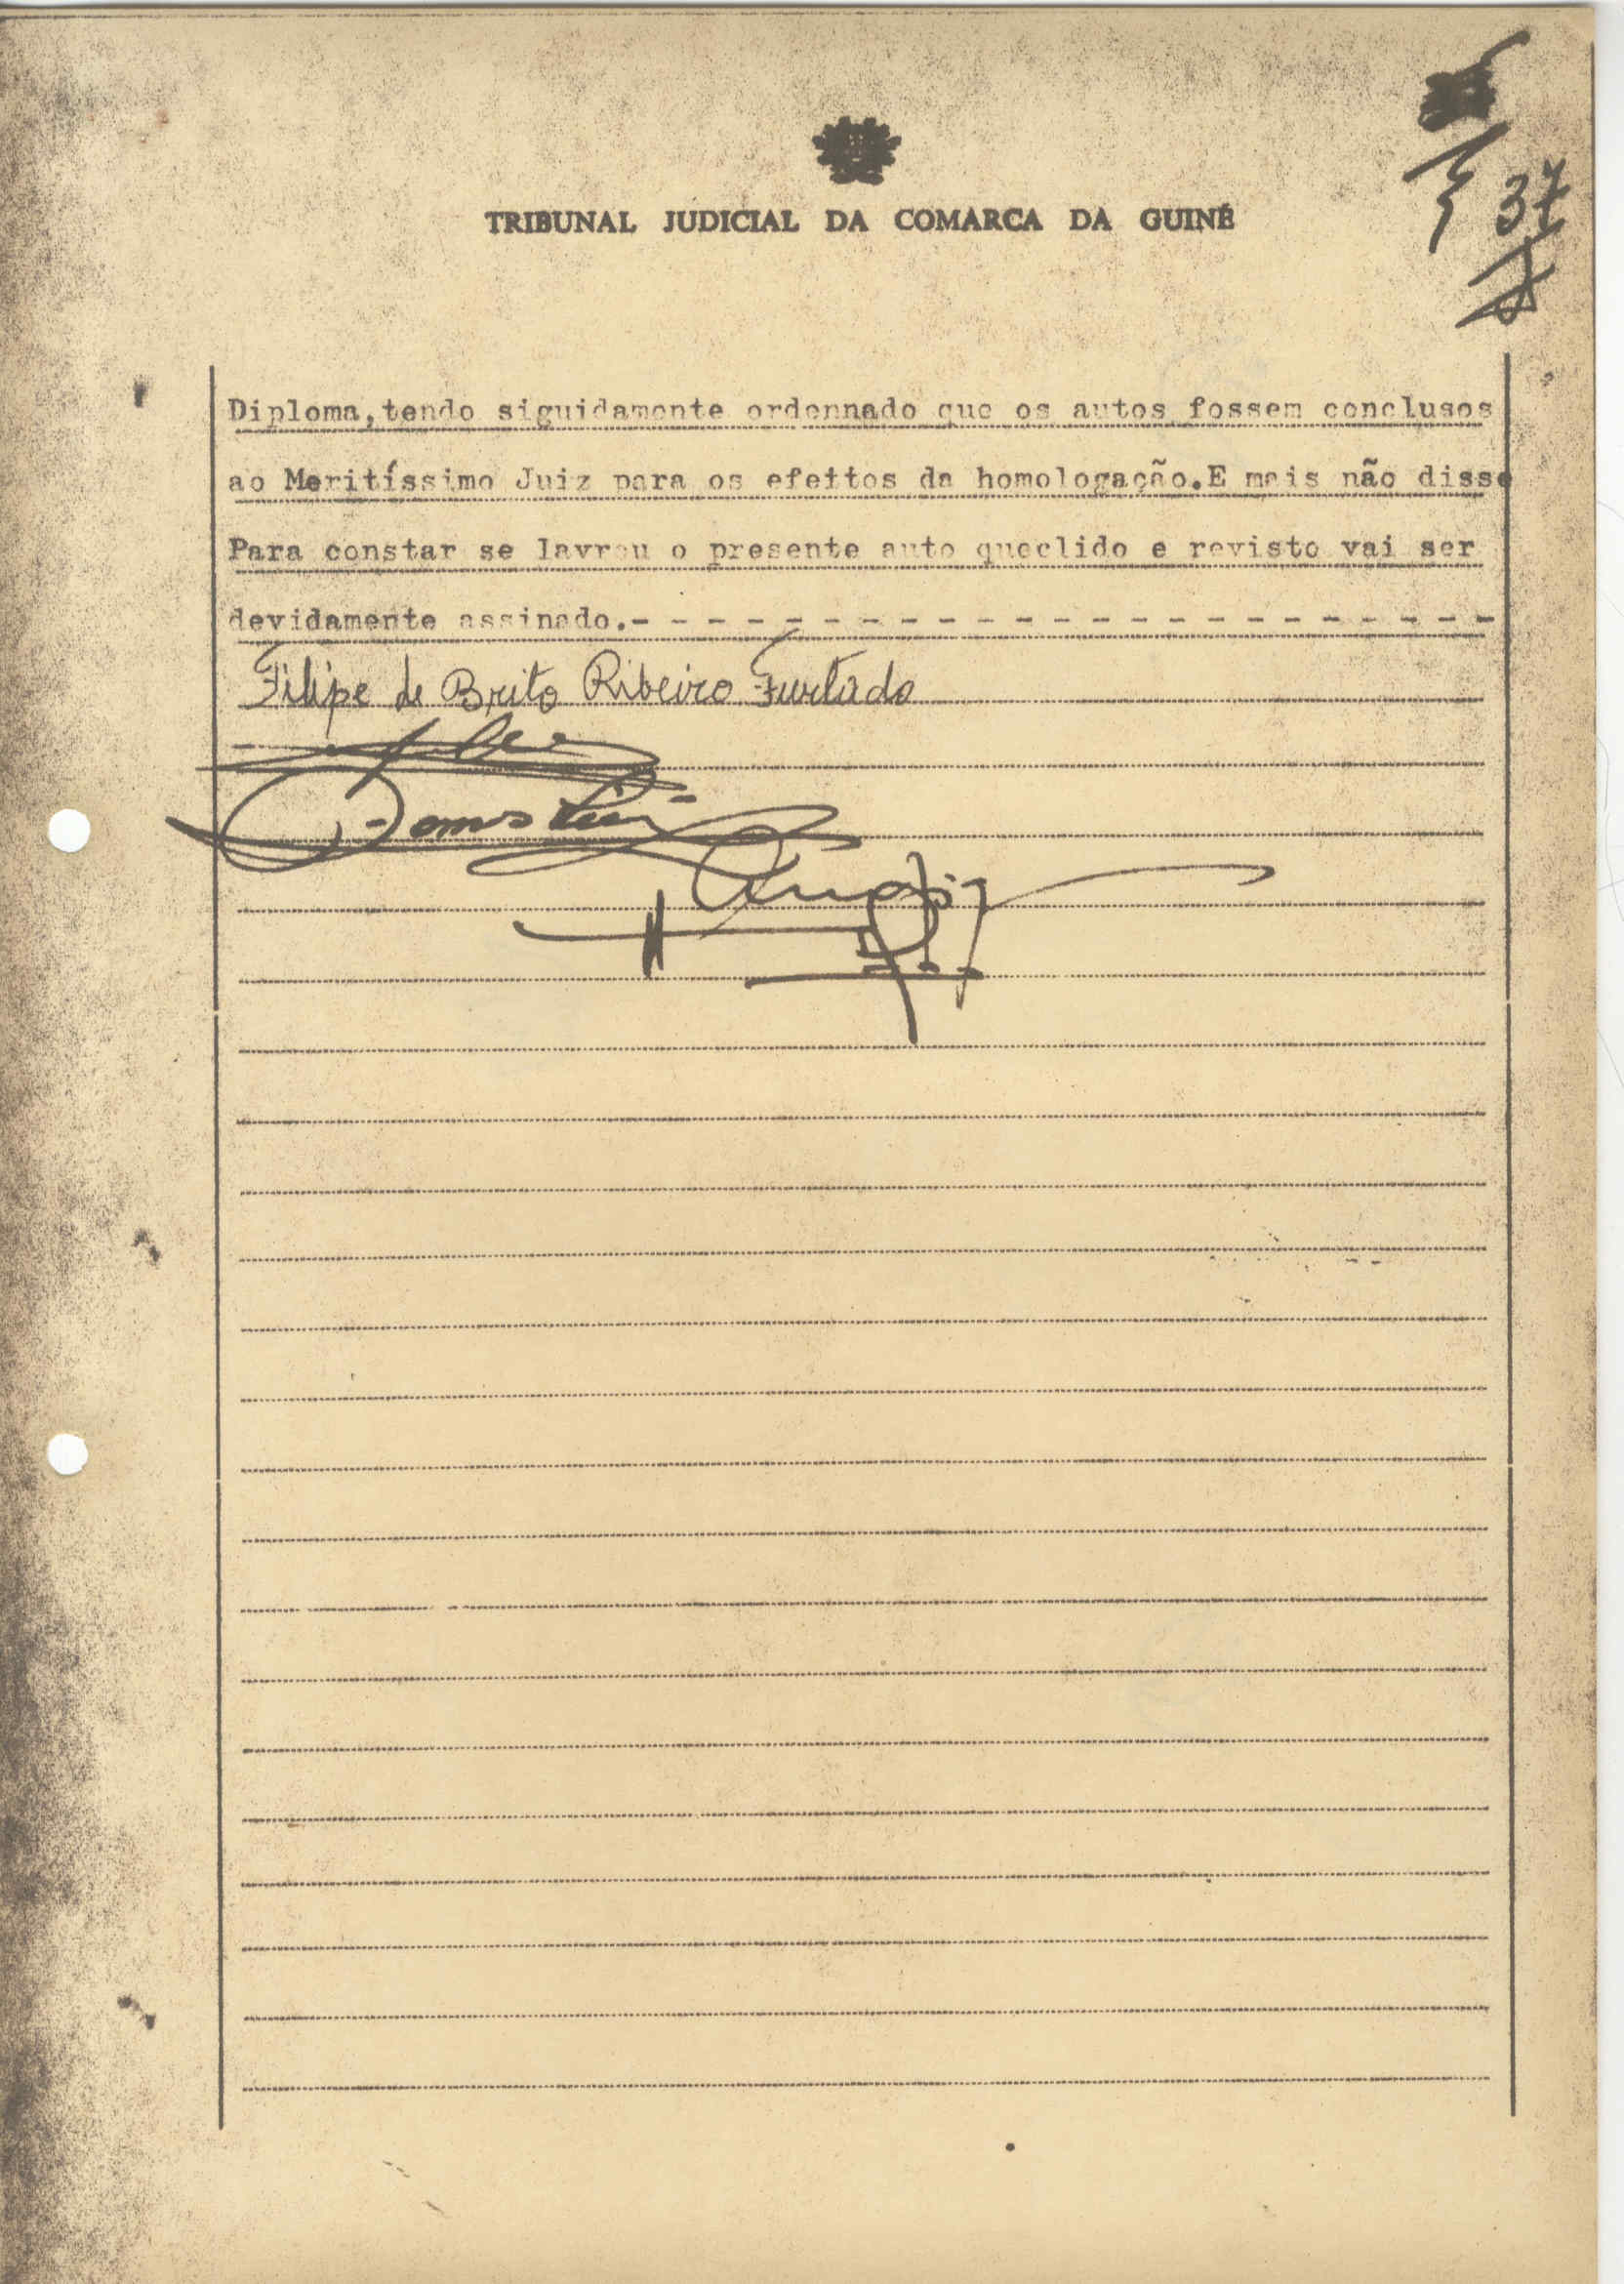 37
TRIBUNAL JUDICIAL DA COMARCA DA GUINÉ
Diploma,tendo siguidamente ordennado que os autos fossem conclusos
ao Meritíssimo Juiz para os efeitos da homologação.E mais não disse
Para constar se lavrou o presente auto queclido e revisto vai ser
devidamente assinado.- - - - - - - - - - - - - - - - - - - - - - -
Filipe de Brito Ribeiro Furtado